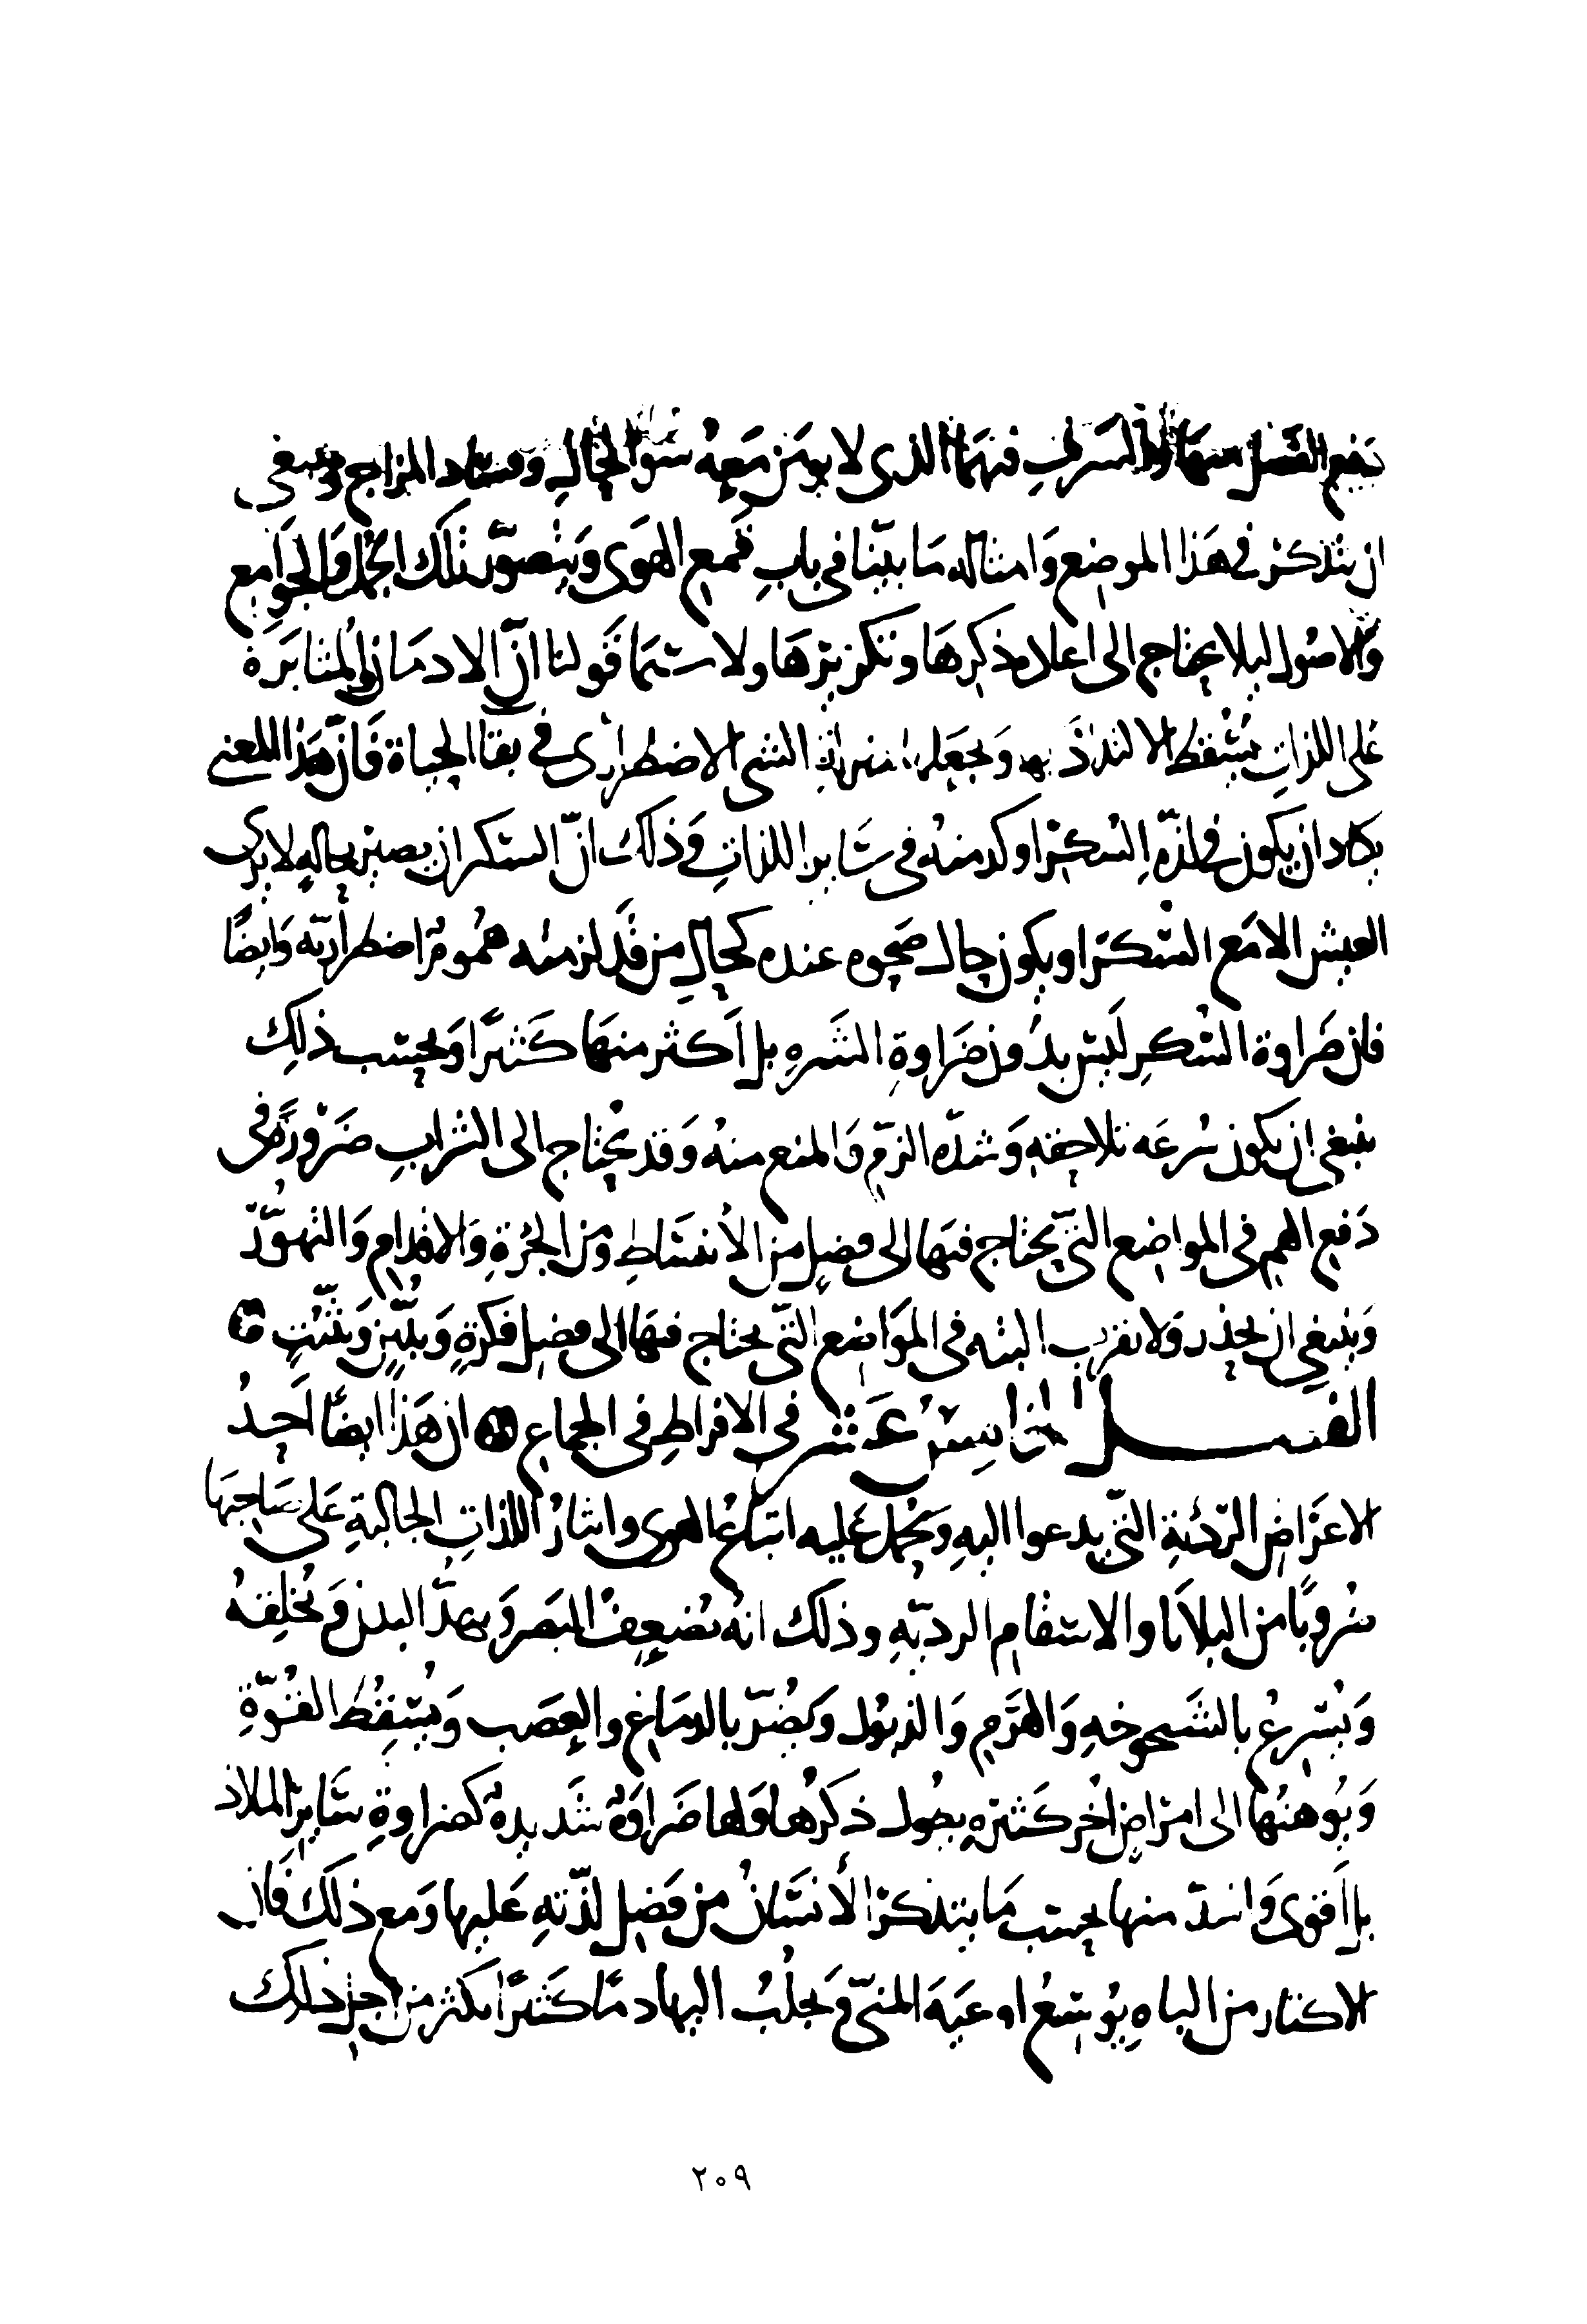 دفع الفضل منها والسرف فيها الذي لا يومن معه سو الحال وفساد المزاج وينبغي
ان يتذكر في هذا الموضع وامثاله ما بيّنا في باب قمع الهوى ويتصوّر تلك الجمل والجوامع
والاصول ليلا يحتاج الى اعادة ذكرها وتكريرها ولا سيّما قولنا انّ الادمان والمثابرة
على اللذات يُسقط الالتذاذ بها ويجعلها بمنزلة الشي الاضطراري في بقا الحياة فانّ هذا المعنى
يكاد ان يكون في لذّة السُكر اوكد منه في ساير اللذات وذلك انّ السكران يصير بحالةٍ لا يرى
العيش الا مع السُكر او يكون حال صحوه عنده كحالِ من قد لزمته همُومٌ اضطراريّه وايضًا
فان ضراوة السُكرِ ليس بدُون ضراوةِ الشَرهِ بل اكثر منها كثيرًا وبحسب ذلك
ينبغي ان يكون سُرعه تلاحقهِ وشدّة الزمّ والمنع منهُ وقد يُحتاج الى الشراب ضرورةً في
دفع الهمِ في المواضع التي يحتاج فيها الى فضلٍ من الانبساطِ ومن الجُرءةِ والاقدامِ والتهوُّر
وينبغي ان يحذر ولا يقرب البته في المواضع التي يحتاج فيها الى فضل فكرةٍ وتبيّنٍ وتثبّتٍ ه
الفصل الخامس عشر في الافراطِ في الجماع ه ان هذا ايضًا احدُ
الاعراضِ الردئةِ التي يدعوا اليهِ ويحمل عليه اتباعُ الهوى وايثارُ اللذات الجالبةِ على صاحبها
ضروبًا من البلايا والاسقامِ الرديّةِ وذلك انه يُضعِفُ البصر ويهدّ البدن ويُخلِقهُ
ويُسرعُ بالشيخوخهِ والهرَمِ والذبول ويُضرّ بالدماغِ والعصَب ويُسقِطُ القُوّةِ
ويُوهنُها الى امراضٍ اخُر كثيرةٍ يطُول ذكرُها ولها ضراوةٌ شديدةٌ كضراوةِ سايرِ الملاذ
بل اقوى واشدّ منها بحسب ما يتذكر الأنسَانُ من فضلِ لذّتهِ عليها ومع ذلك فان
الاكثار من الباهِ يُوسّعُ اوعيَةَ المنيّ ويجلُبُ اليها دمًا كثيرًا يكثر من اجل ذلك
٢٠٩